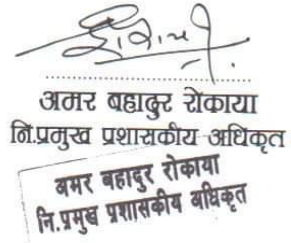 अमर बहादुर रोकाया
नि.प्रमुख प्रशासकीय अधिकृत
अमर बहादुर रोकाया
नि.प्रमुख प्रशासकीय अधिकृत